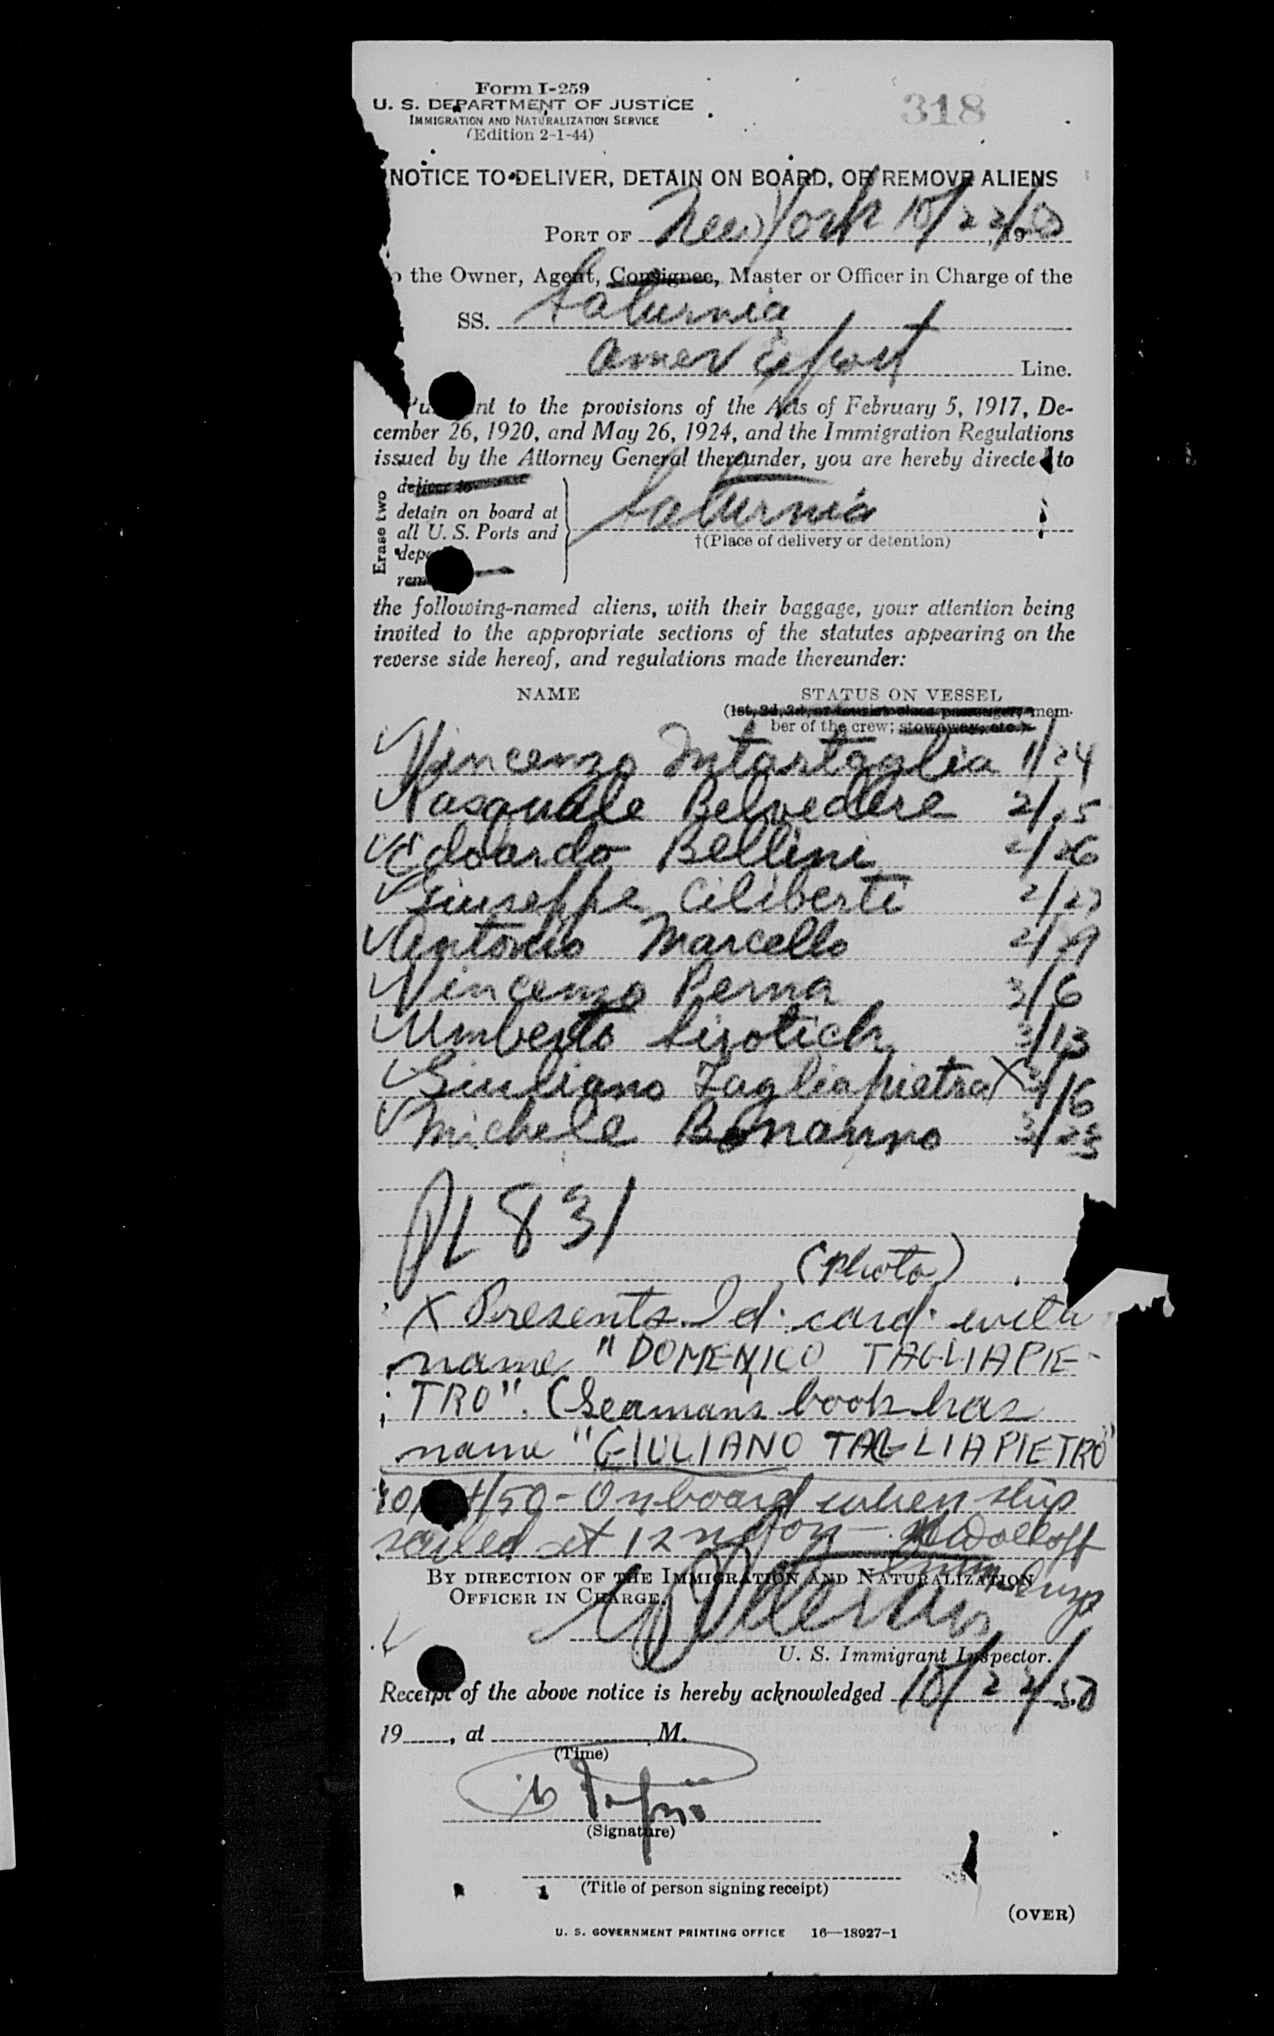 Form I-259
U. S. DEPARTMENT OF JUSTICE
IMMIGRATION AND NATURALIZATION SERVICE
(Edition 2-1-44)
318
NOTICE TO DELIVER, DETAIN ON BOARD, OR REMOVE ALIENS
PORT OF New York 10/22/1950
the Owner, Agent, Consignee, Master or Officer in Charge of the
SS. Saturnia
Amer Export Line.
Pursuant to the provisions of the Acts of February 5, 1917, De-
cember 26, 1920, and May 26, 1924, and the Immigration Regulations
issued by the Attorney General thereunder, you are hereby directed to
Erase two
deliver to
detain on board at
all U. S. Ports and
Saturnia
†(Place of delivery or detention)
the following-named aliens, with their baggage, your attention being
invited to the appropriate sections of the statutes appearing on the
reverse side hereof, and regulations made thereunder:
NAME STATUS ON VESSEL
(1st, 2d, 3d, or tourist class passenger, mem-
ber of the crew; stowaway, etc.)
Vincenzo Intartaglia 1/24
Pasquale Belvedere 2/25
Edoardo Bellini 2/26
Giuseppe Ciliberti 2/27
Antonio Marcello 2/29
Vincenzo Perna 3/6
Umberto Sirotich 3/13
Giuliano Tagliapietra X 3/16
Michele Bonanno 3/23
PL 831
(photo)
X Presents Id. card. with
name "DOMENICO TAGLIAPIE-
TRO". (Seamans book has
name "GIULIANO TAGLIAPIETRO"
10/24/50 - Onboard when ship
sailed at 12 noon -
BY DIRECTION OF THE IMMIGRATION AND NATURALIZATION
OFFICER IN CHARGE.
U. S. Immigrant Inspector.
Receipt of the above notice is hereby acknowledged 10/22/50
19 , at M.
(Time)
(Signature)
(Title of person signing receipt)
(OVER)
U. S. GOVERNMENT PRINTING OFFICE 16—18927-1